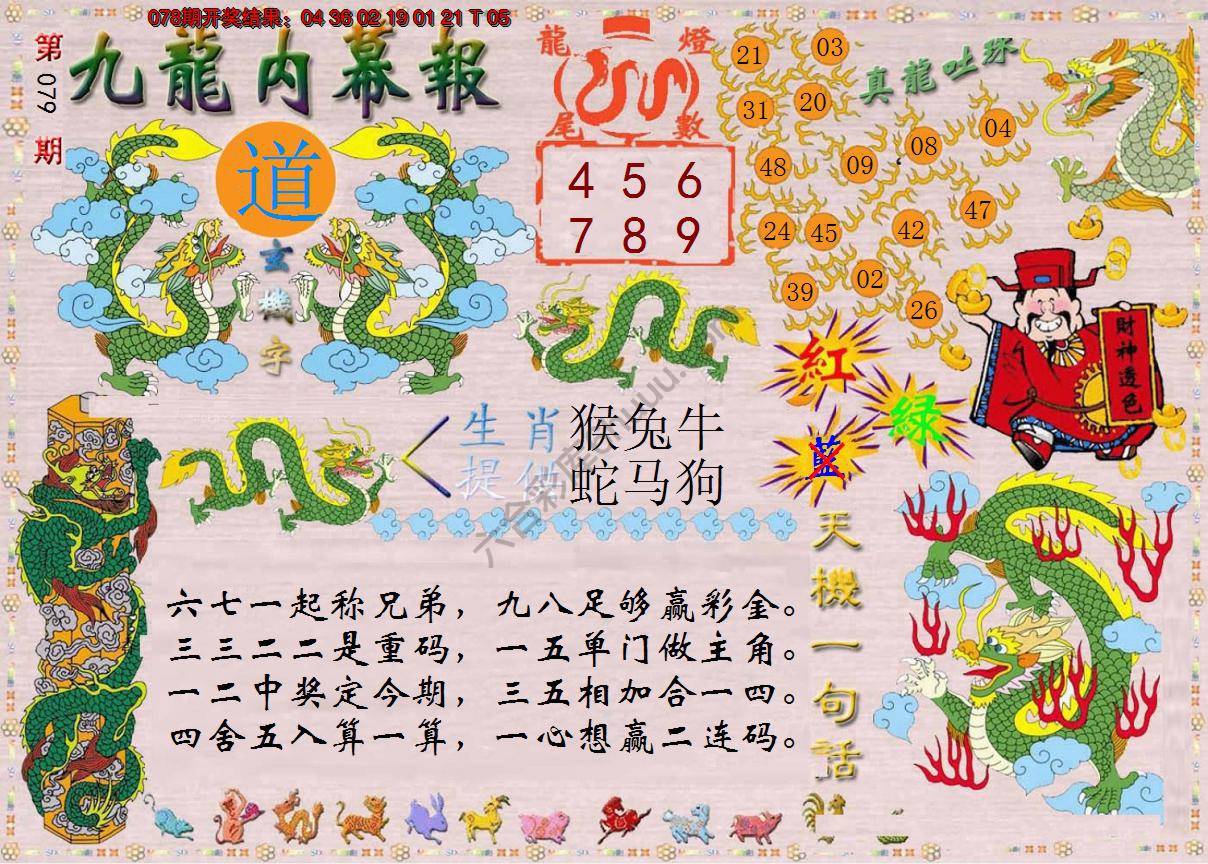 078期开奖结果：04 36 02 19 01 21 T 05
第079期
九龍内幕報
道
玄機字
龍燈
尾數
4 5 6
7 8 9
真龍吐珠
21 03
31 20
48 09 08 04
24 45 42 47
39 02 26
財神透色
紅
綠
藍
生肖 猴兔牛
提供 蛇马狗
天機一句話
六七一起称兄弟，九八足够赢彩金。
三三二二是重码，一五单门做主角。
一二中奖定今期，三五相加合一四。
四舍五入算一算，一心想赢二连码。